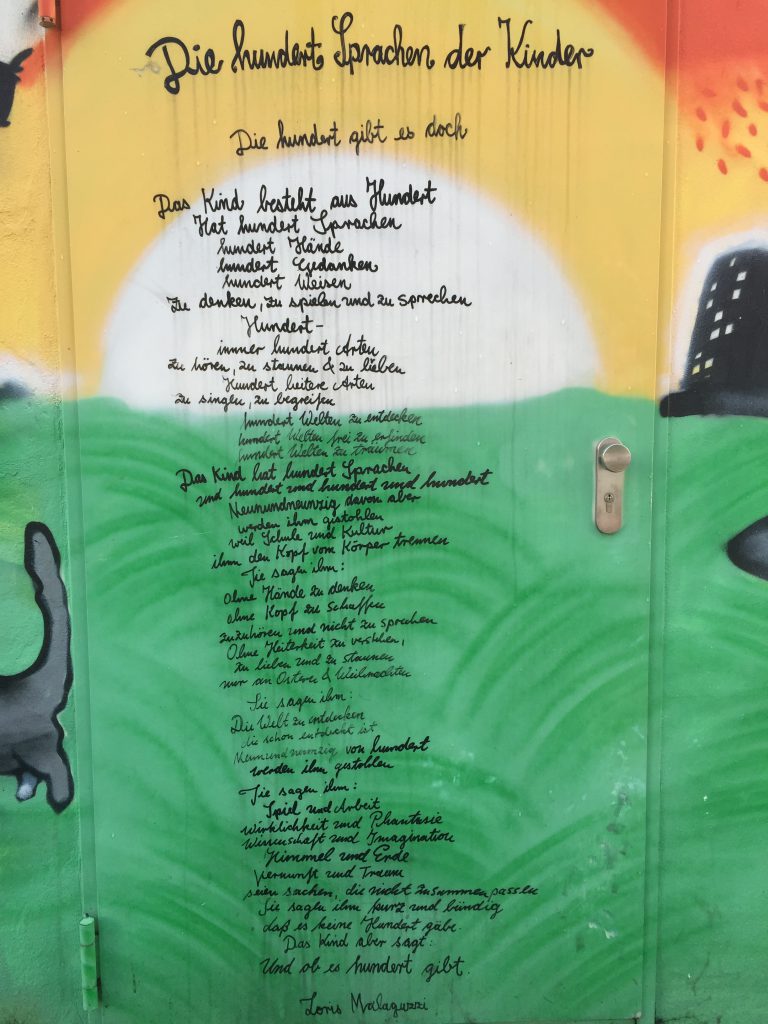 Die hundert Sprachen der Kinder
Die hundert gibt es doch
Das Kind besteht aus Hundert
Hat hundert Sprachen
hundert Hände
hundert Gedanken
hundert Weisen
zu denken, zu spielen und zu sprechen
Hundert-
immer hundert Arten
zu hören, zu staunen & zu lieben
Hundert heitere Arten
zu singen, zu begreifen
hundert Welten zu entdecken
hundert Welten frei zu erfinden
hundert Welten zu träumen
Das Kind hat hundert Sprachen
und hundert und hundert und hundert
Neunundneunzig davon aber
werden ihm gestohlen
weil Schule und Kultur
ihm den Kopf vom Körper trennen
Sie sagen ihm:
Ohne Hände zu denken
ohne Kopf zu schaffen
zuzuhören und nicht zu sprechen
Ohne Heiterkeit zu verstehen,
zu lieben und zu staunen
nur an Ostern & Weihnachten
Sie sagen ihm:
Die Welt zu entdecken
die schon entdeckt ist
Neunundneunzig von hundert
werden ihm gestohlen
Sie sagen ihm:
Spiel und Arbeit
Wirklichkeit und Phantasie
Wissenschaft und Imagination
Himmel und Erde
Vernunft und Traum
seien sachen, die nicht zusammen passen
Sie sagen ihm kurz und bündig
daß es keine Hundert gäbe.
Das Kind aber sagt:
Und ob es hundert gibt.
Loris Malaguzzi